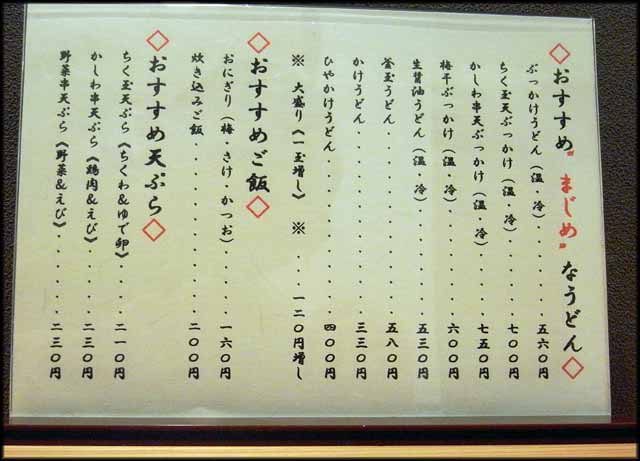 ◇おすすめ〝まじめ〟なうどん◇
ぶっかけうどん（温・冷）・・・・五六〇円
ちく玉天ぶっかけ（温・冷）・・・七〇〇円
かしわ串天ぶっかけ（温・冷）・・・七五〇円
梅干ぶっかけ（温・冷）・・・・・六〇〇円
生醤油うどん（温・冷）・・・・・五三〇円
釜玉うどん・・・・・・・・・・・五八〇円
かけうどん・・・・・・・・・・・三三〇円
ひやかけうどん・・・・・・・・・四〇〇円
※ 大盛り《一玉増し》 ※ ・・・一二〇円増し
◇おすすめご飯◇
おにぎり（梅・さけ・かつお）・・・・一六〇円
炊き込みご飯・・・・・・・・・・二〇〇円
◇おすすめ天ぷら◇
ちく玉天ぷら《ちくわ＆ゆで卵》・・・・二一〇円
かしわ串天ぷら《鶏肉＆えび》・・・・・二三〇円
野菜串天ぷら《野菜＆えび》・・・・・二三〇円